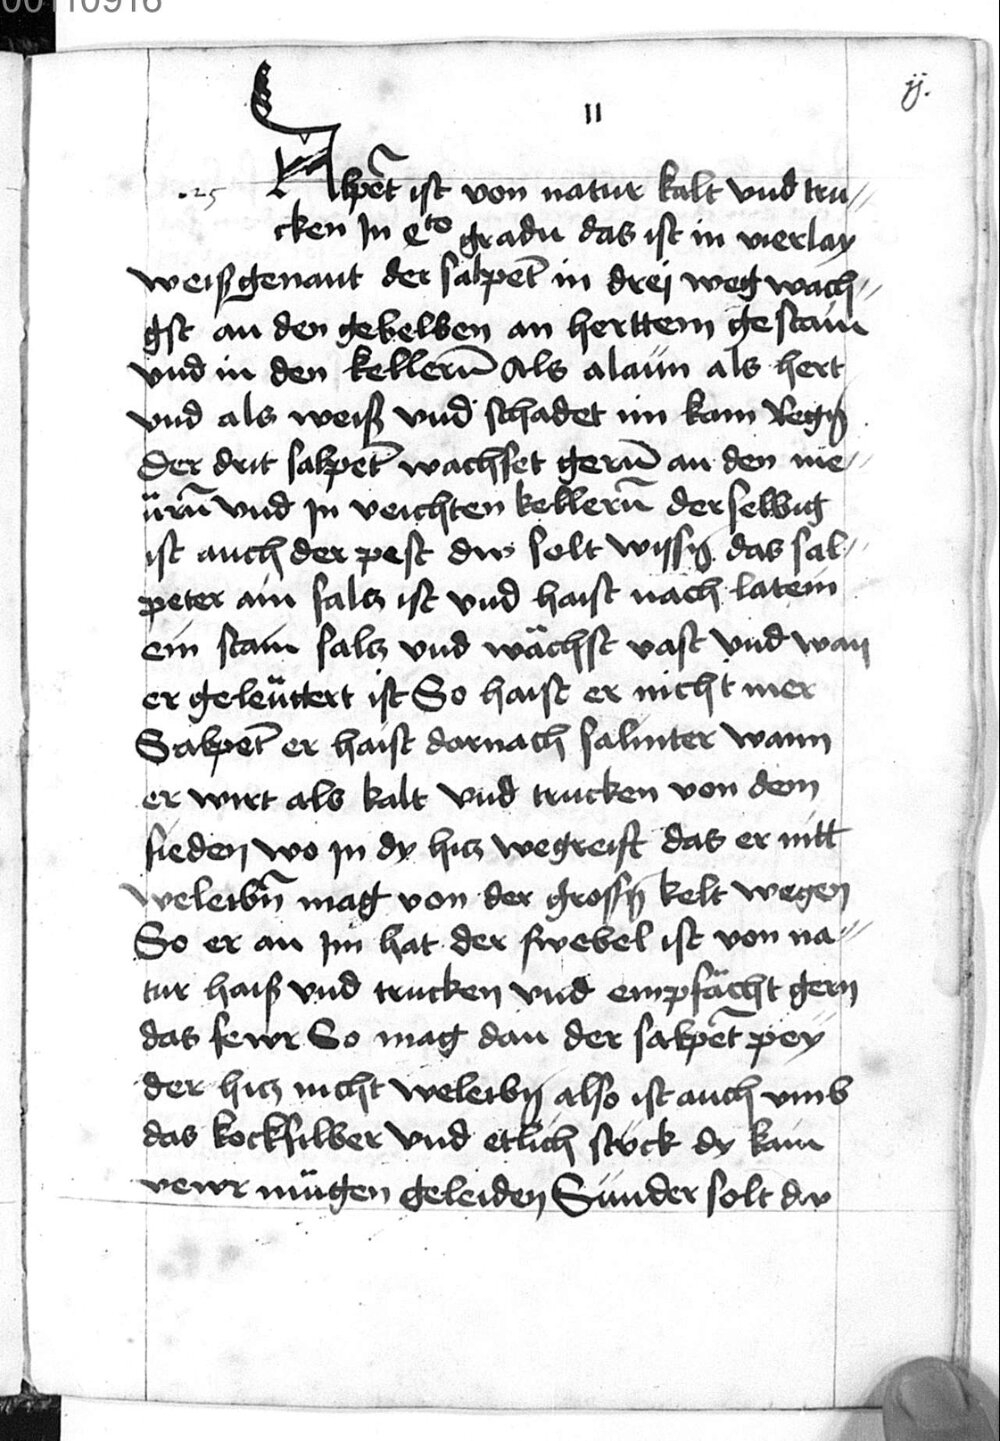 00110916
ij.
II
.25 Salpet̄ ist von natur kalt vnd tru//
cken Jn e^to gradu das ist in vierlay
weiß genant der salpet̄ in drei weg wach//
gst an den gebelben an herttem gestain
vnd in den kellern̄ Als alaün als hert
vnd als weiß vnd schadet im kain Regn̄
Der drit salpet̄ wachset gern̄ an den me//
ürn̄ vnd Jn veichten kellern̄ der selbig
ist auch der pest dw solt wissn̄ das sal//
peter ain salcz ist vnd haist nach latein
ein stain salcz vnd wächst vast vnd wan
er geleüttert ist So haist er nicht mer
Salpet̄ er haist dornach saliniter wann
er wirt als kalt vnd trucken von dem
sieden wo Jn dy hicz wegreift das er nitt
weleibn̄ mag von der grossn̄ kelt wegen
So er an Jm hat der swebel ist von na//
tur haiß vnd trucken vnd empfächt gern
das fewr So mag dan der salpet̄ pey
der hicz nicht weleibn also ist auch vmb
das kocksilber vnd etlich stuck dy kain
vewr mügen geleiden Sunder solt dw